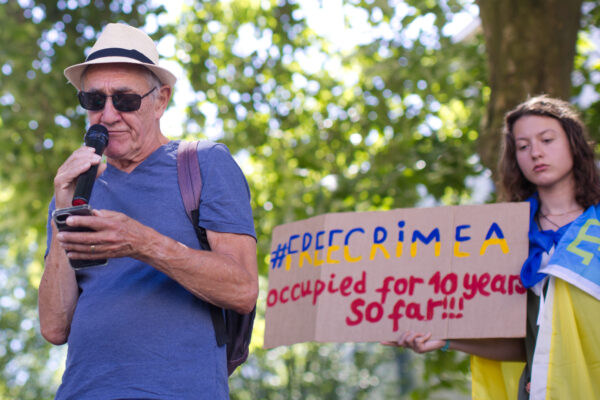 #FREECRIMEA
occupied for 10 years
so far!!!